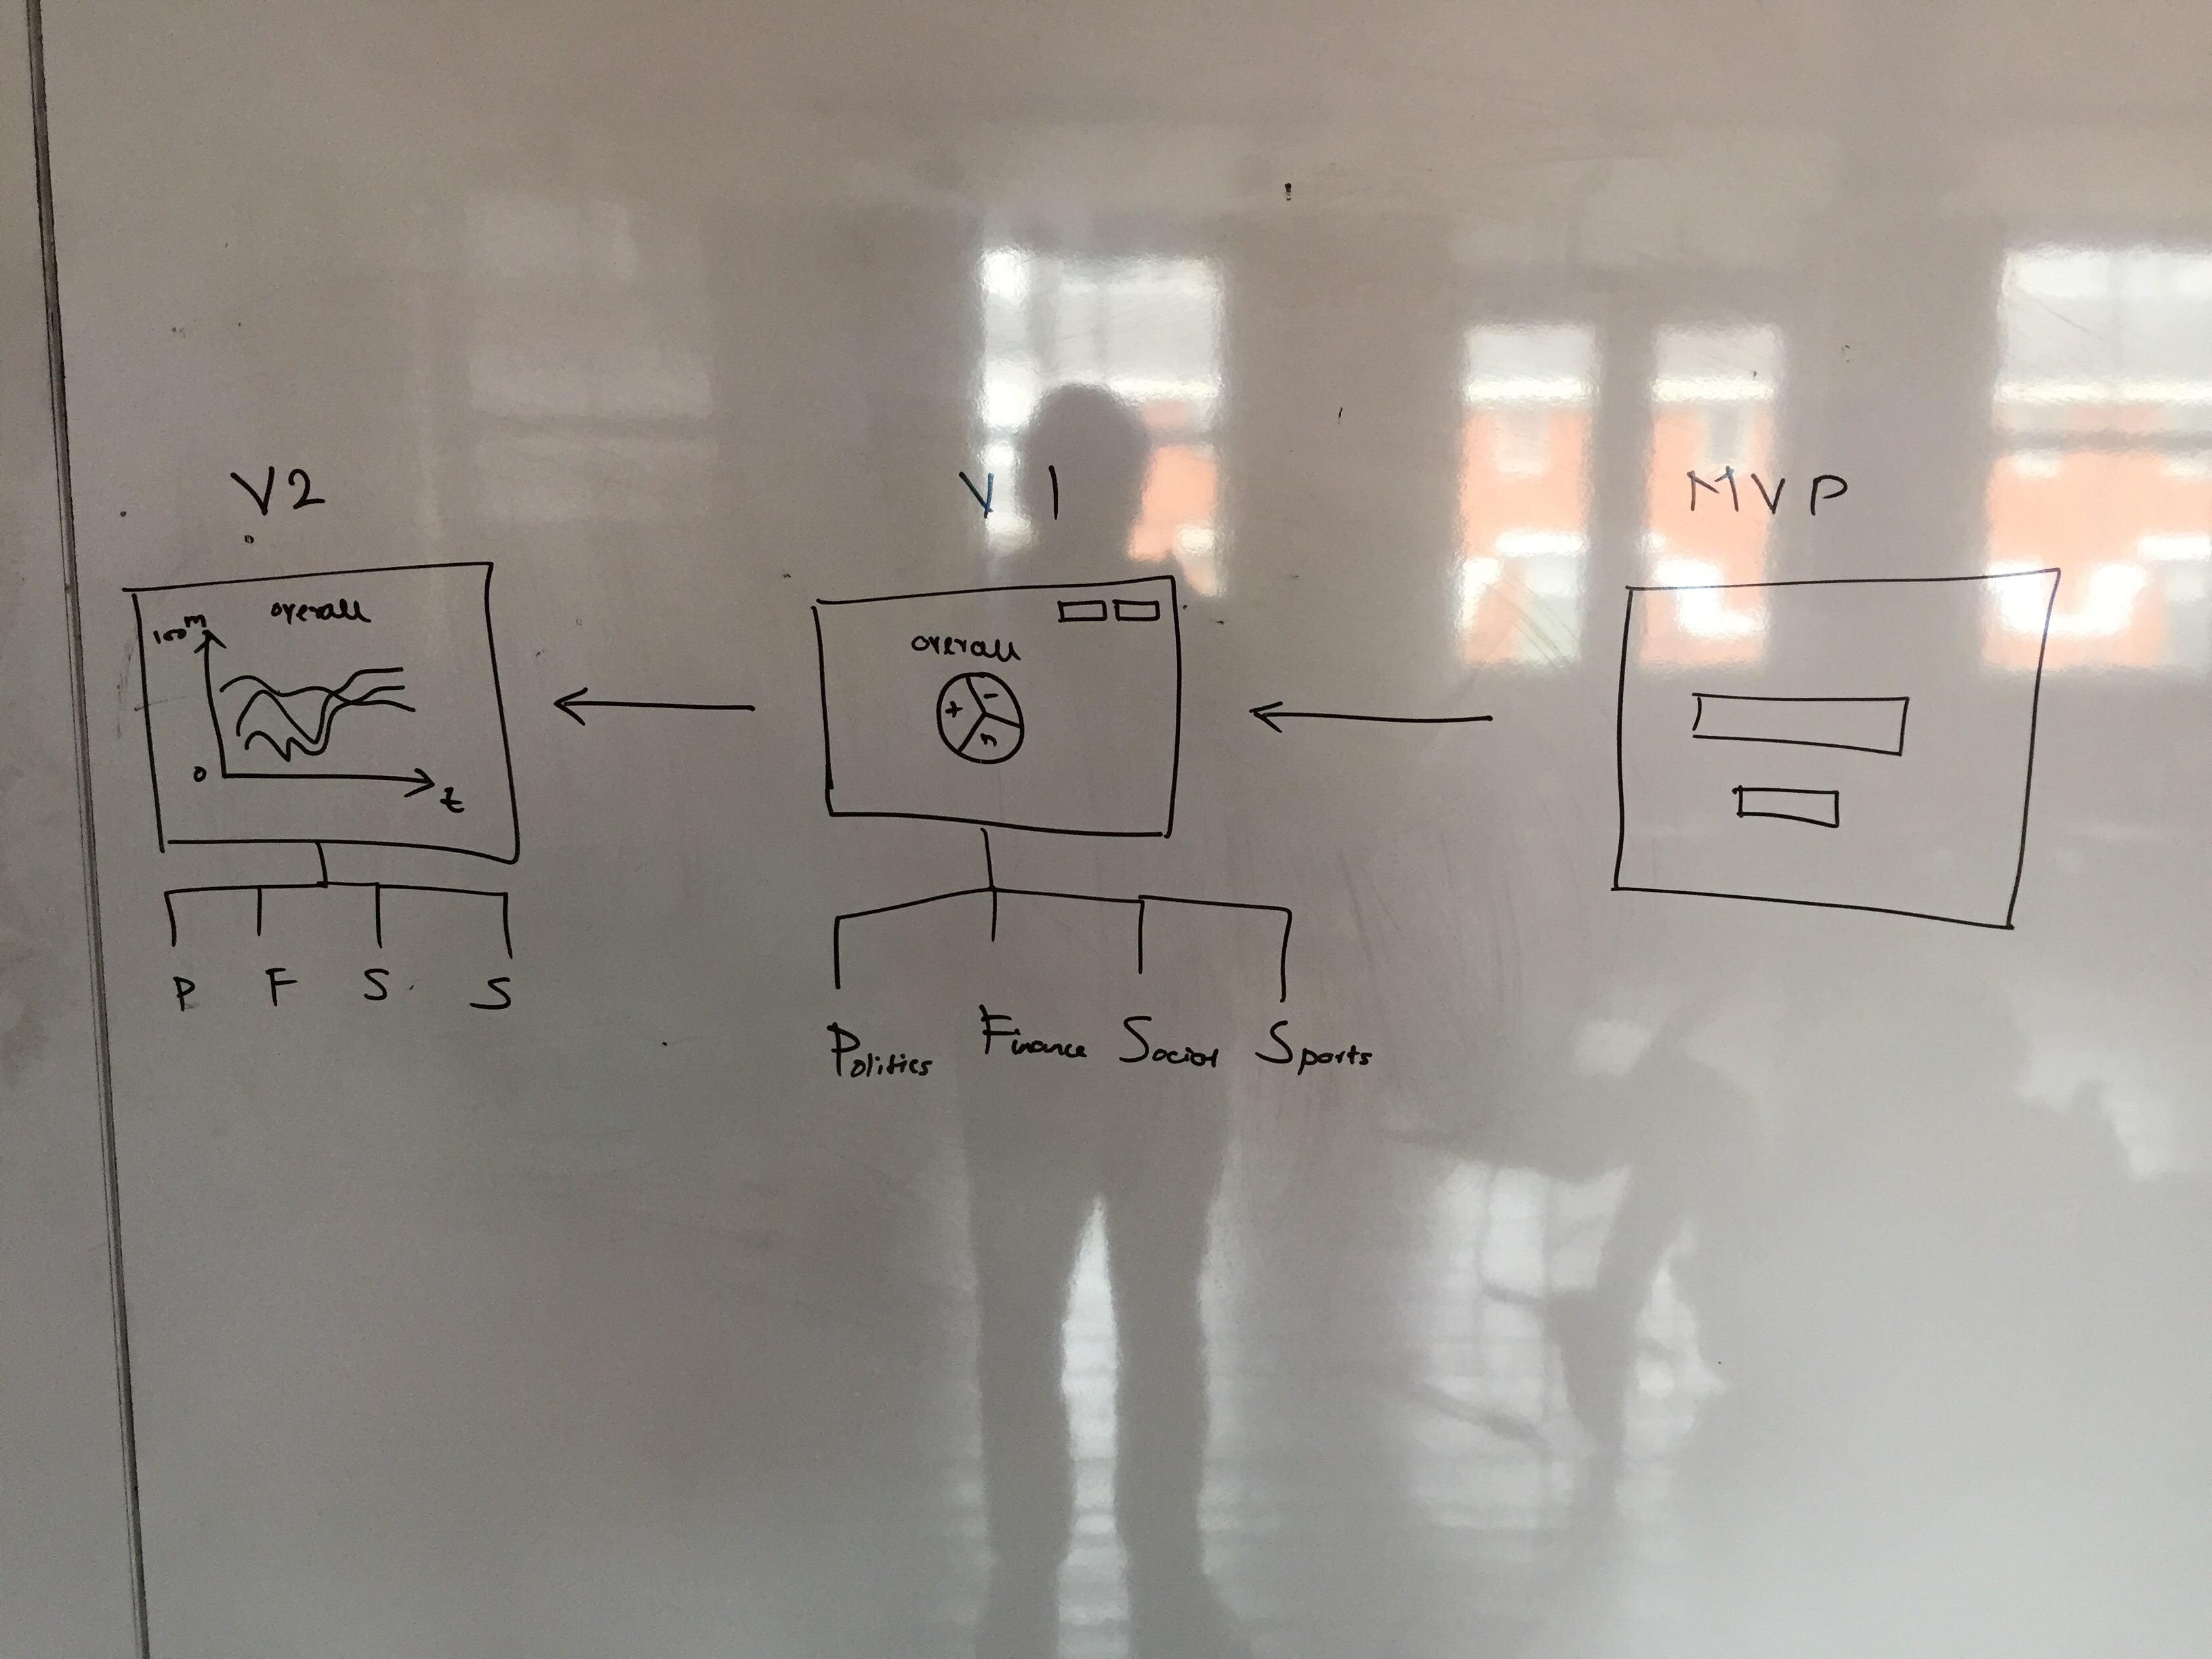 V2
V 1
MVP
overall
100 m
0
t
P F S S
overall
+ - n
Politics Finance Social Sports